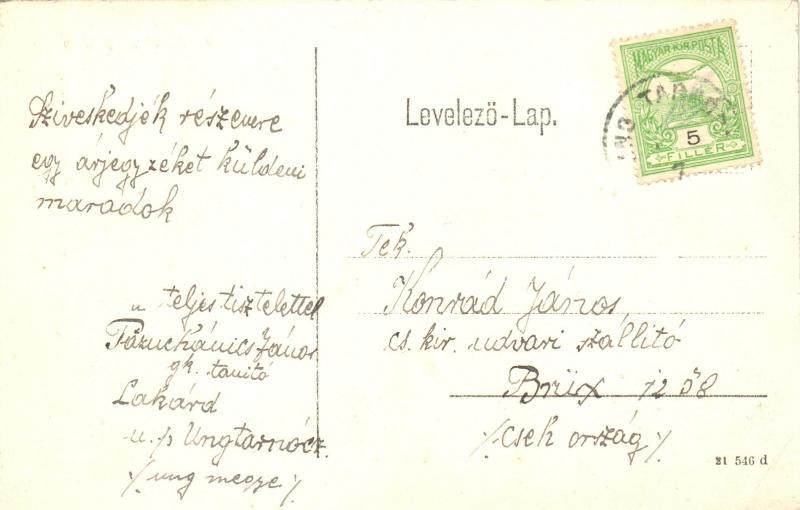 Sziveskedjék részemre
egy árjegyzéket küldeni
maradok
teljes tisztelettel
Pazuchánics János
gk. tanító
Lakárd
u. p. Ungtarnócz.
/ ung megye /
Levelező-Lap.
MAGYAR KIR. POSTA
5
FILLÉR
UNG TARNÓ
Tek.
Konrád János
cs. kir. udvari szállító
Brüx 1258
/ Cseh ország /
21 546 d